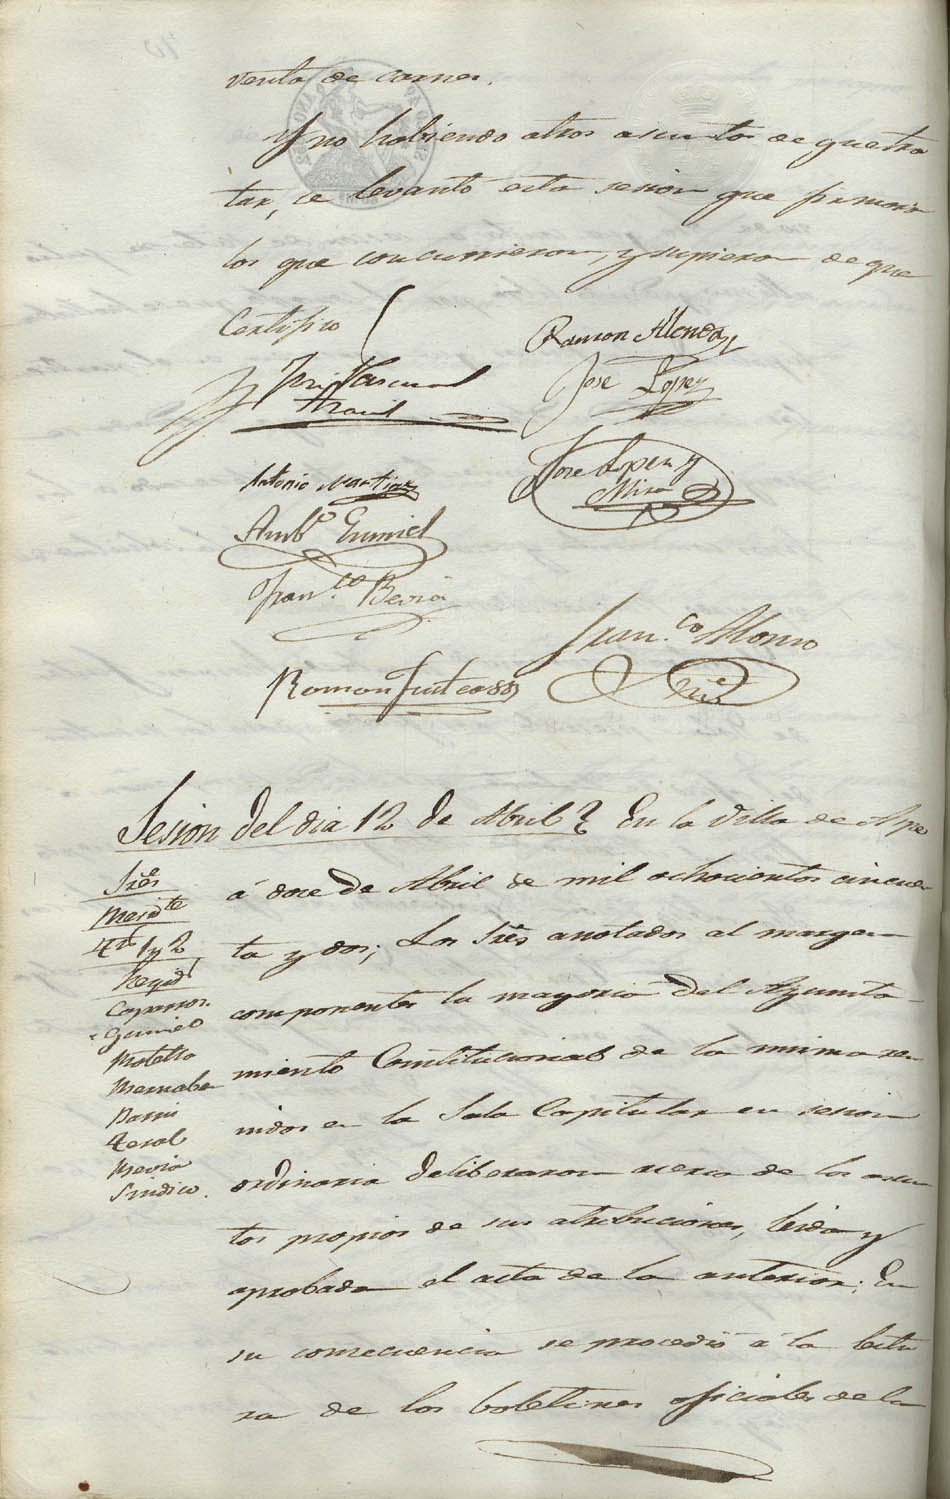 venta de carnes.
Y no habiendo otros asuntos de que tra
tar, se levantó esta sesion que firmaron
los que concurrieron, y supieron de que
Certifico
Ramon Alenda
José Pascual
José Lopez
Antonio Martinez
José Lopez y
Mira
Amb.º Gumiel
Fran.co Bevia
Fran.co Alonso
Ramon
Sesion del dia 12 de Abril
En la Villa de Aspe
á doce de Abril de mil ochocientos cincuen
ta y dos; Los Sres anotados al margen
componentes la mayoria del Ayunta-
miento Constitucional de la misma reu
nidos en la Sala Capitular en sesion
ordinaria deliberaron acerca de los asun
tos propios de sus atribuciones, leida y
aprobada el acta de la anterior; En
su consecuencia se procedió á la lectu
ra de los boletines oficiales de la
Sres
Presidte
1º y 2º
Regid
Caparros.
Gumiel
Botella
Bernabe
Pavia
Zeral
Bevia
Sindico.